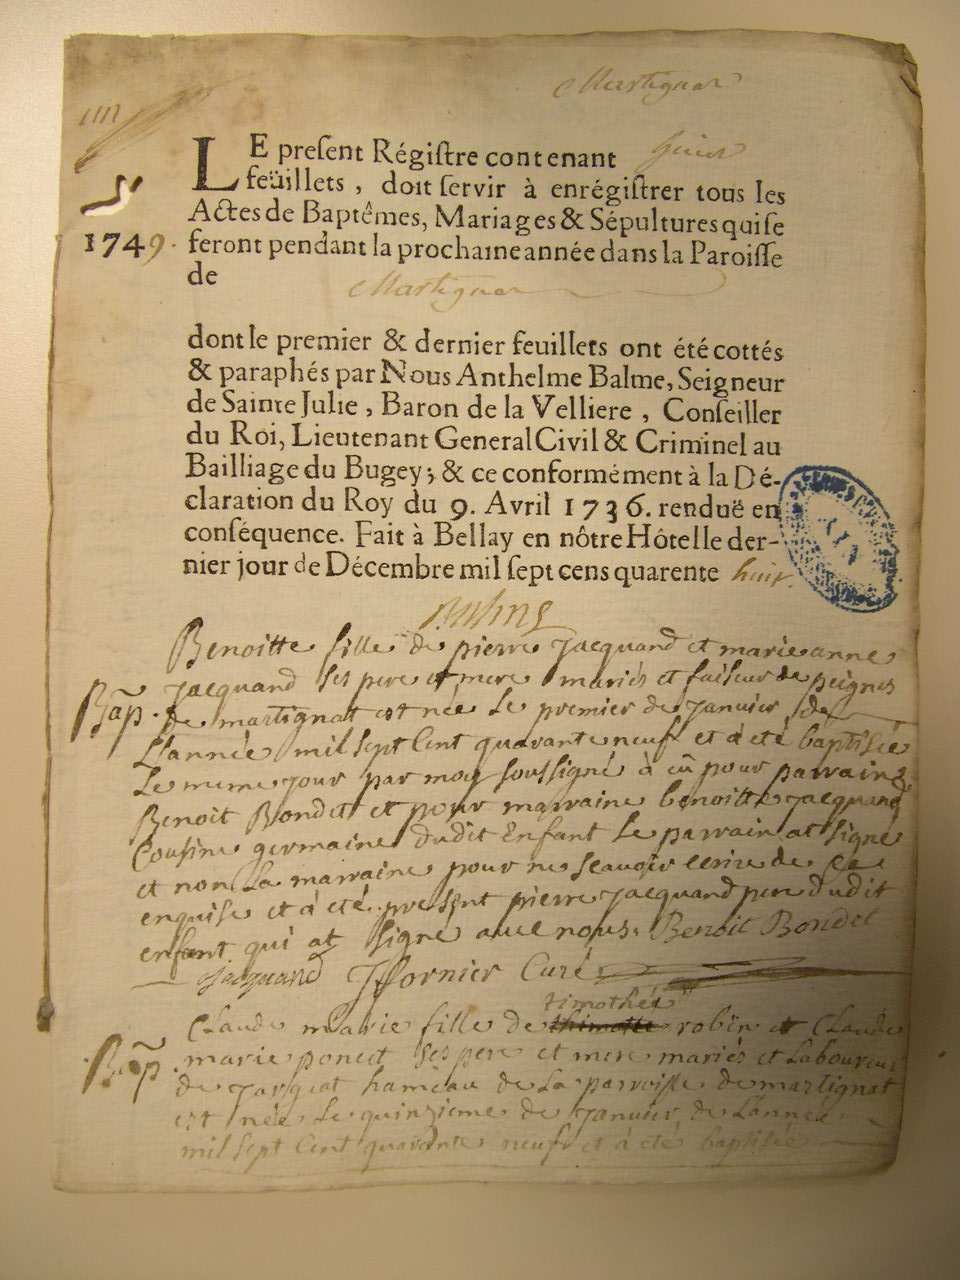 Martignat
LE present Régistre contenant huict
feüillets, doit servir à enrégistrer tous les
Actes de Baptêmes, Mariages & Sépultures qui se
1749. feront pendant la prochaine année dans la Paroisse
de Martignat
dont le premier & dernier feuillets ont été cottés
& paraphés par Nous Anthelme Balme, Seigneur
de Sainte Julie, Baron de la Velliere, Conseiller
du Roi, Lieutenant General Civil & Criminel au
Bailliage du Bugey; & ce conformément à la Dé-
claration du Roy du 9. Avril 1736. renduë en
conséquence. Fait à Bellay en nôtre Hôtel le der-
nier jour de Décembre mil sept cens quarente huit.
Benoitte fille de pierre Jacquand et marie anne
Bap. Jacquand ses pere et mere mariés et faiseur de peignes
de martignat est née le premier de Janvier de
L'année mil sept Cent quarante neuf et à été baptisée
Le meme jour par moy soussigné à eû pour parrain
Benoit Bondet et pour marraine benoitte Jacquand
Cousine germaine dudit Enfant Le parrain at signé
et non La marraine pour ne scauoir ecrire de ce
enquise et à été present pierre Jacquand pere dudit
enfant qui at signé avec nous. Benoit Bondet
Jacquand Ffornier Curé
timothée
Claude marie fille de thimotte robin et Claude
Bap. marie poncet ses pere et mere mariés et Laboureur
de Jargeat hameau de La parroisse de martignat
est née Le quinzieme de Janvier de L'année
mil sept Cent quarante neuf et à été baptisée